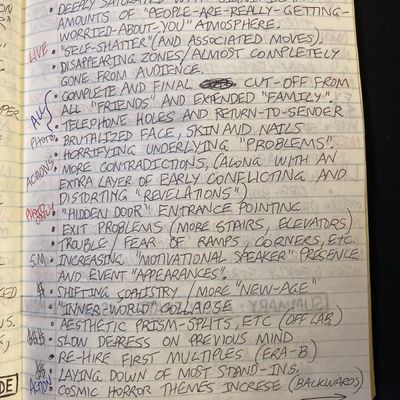 • DEEPLY SATURATED WITH
AMOUNTS OF "PEOPLE-ARE-REALLY-GETTING-
WORRIED-ABOUT-YOU" ATMOSPHERE.
LIVE • "SELF-SHATTER" (AND ASSOCIATED MOVES).
• DISAPPEARING ZONES/ALMOST COMPLETELY
GONE FROM AUDIENCE.
ALL • COMPLETE AND FINAL CUT-OFF FROM
ALL "FRIENDS" AND EXTENDED "FAMILY".
• TELEPHONE HOLES AND RETURN-TO-SENDER
PHOTO • BRUTALIZED FACE, SKIN AND NAILS
• HORRIFYING UNDERLYING "PROBLEMS".
ACTIONS • MORE CONTRADICTIONS, (ALONG WITH AN
EXTRA LAYER OF EARLY CONFLICTING AND
DISTORTING "REVELATIONS")
• "HIDDEN DOOR" ENTRANCE POINTING
• EXIT PROBLEMS (MORE STAIRS, ELEVATORS)
• TROUBLE/FEAR OF RAMPS, CORNERS, ETC.
S.M. • INCREASING "MOTIVATIONAL SPEAKER" PRESENCE
AND EVENT "APPEARANCES".
# • SHIFTING SOPHISTRY/MORE "NEW-AGE"
• "INNER-WORLD" COLLAPSE
• AESTHETIC PRISM-SPLITS, ETC (OFF LAB)
## • SLOW DEPRESS ON PREVIOUS MIND
• RE-HIRE FIRST MULTIPLES (ERA-B)
## • LAYING DOWN OF MOST STAND-INS.
ACTION • COSMIC HORROR THEMES INCRESE (BACKWARDS)